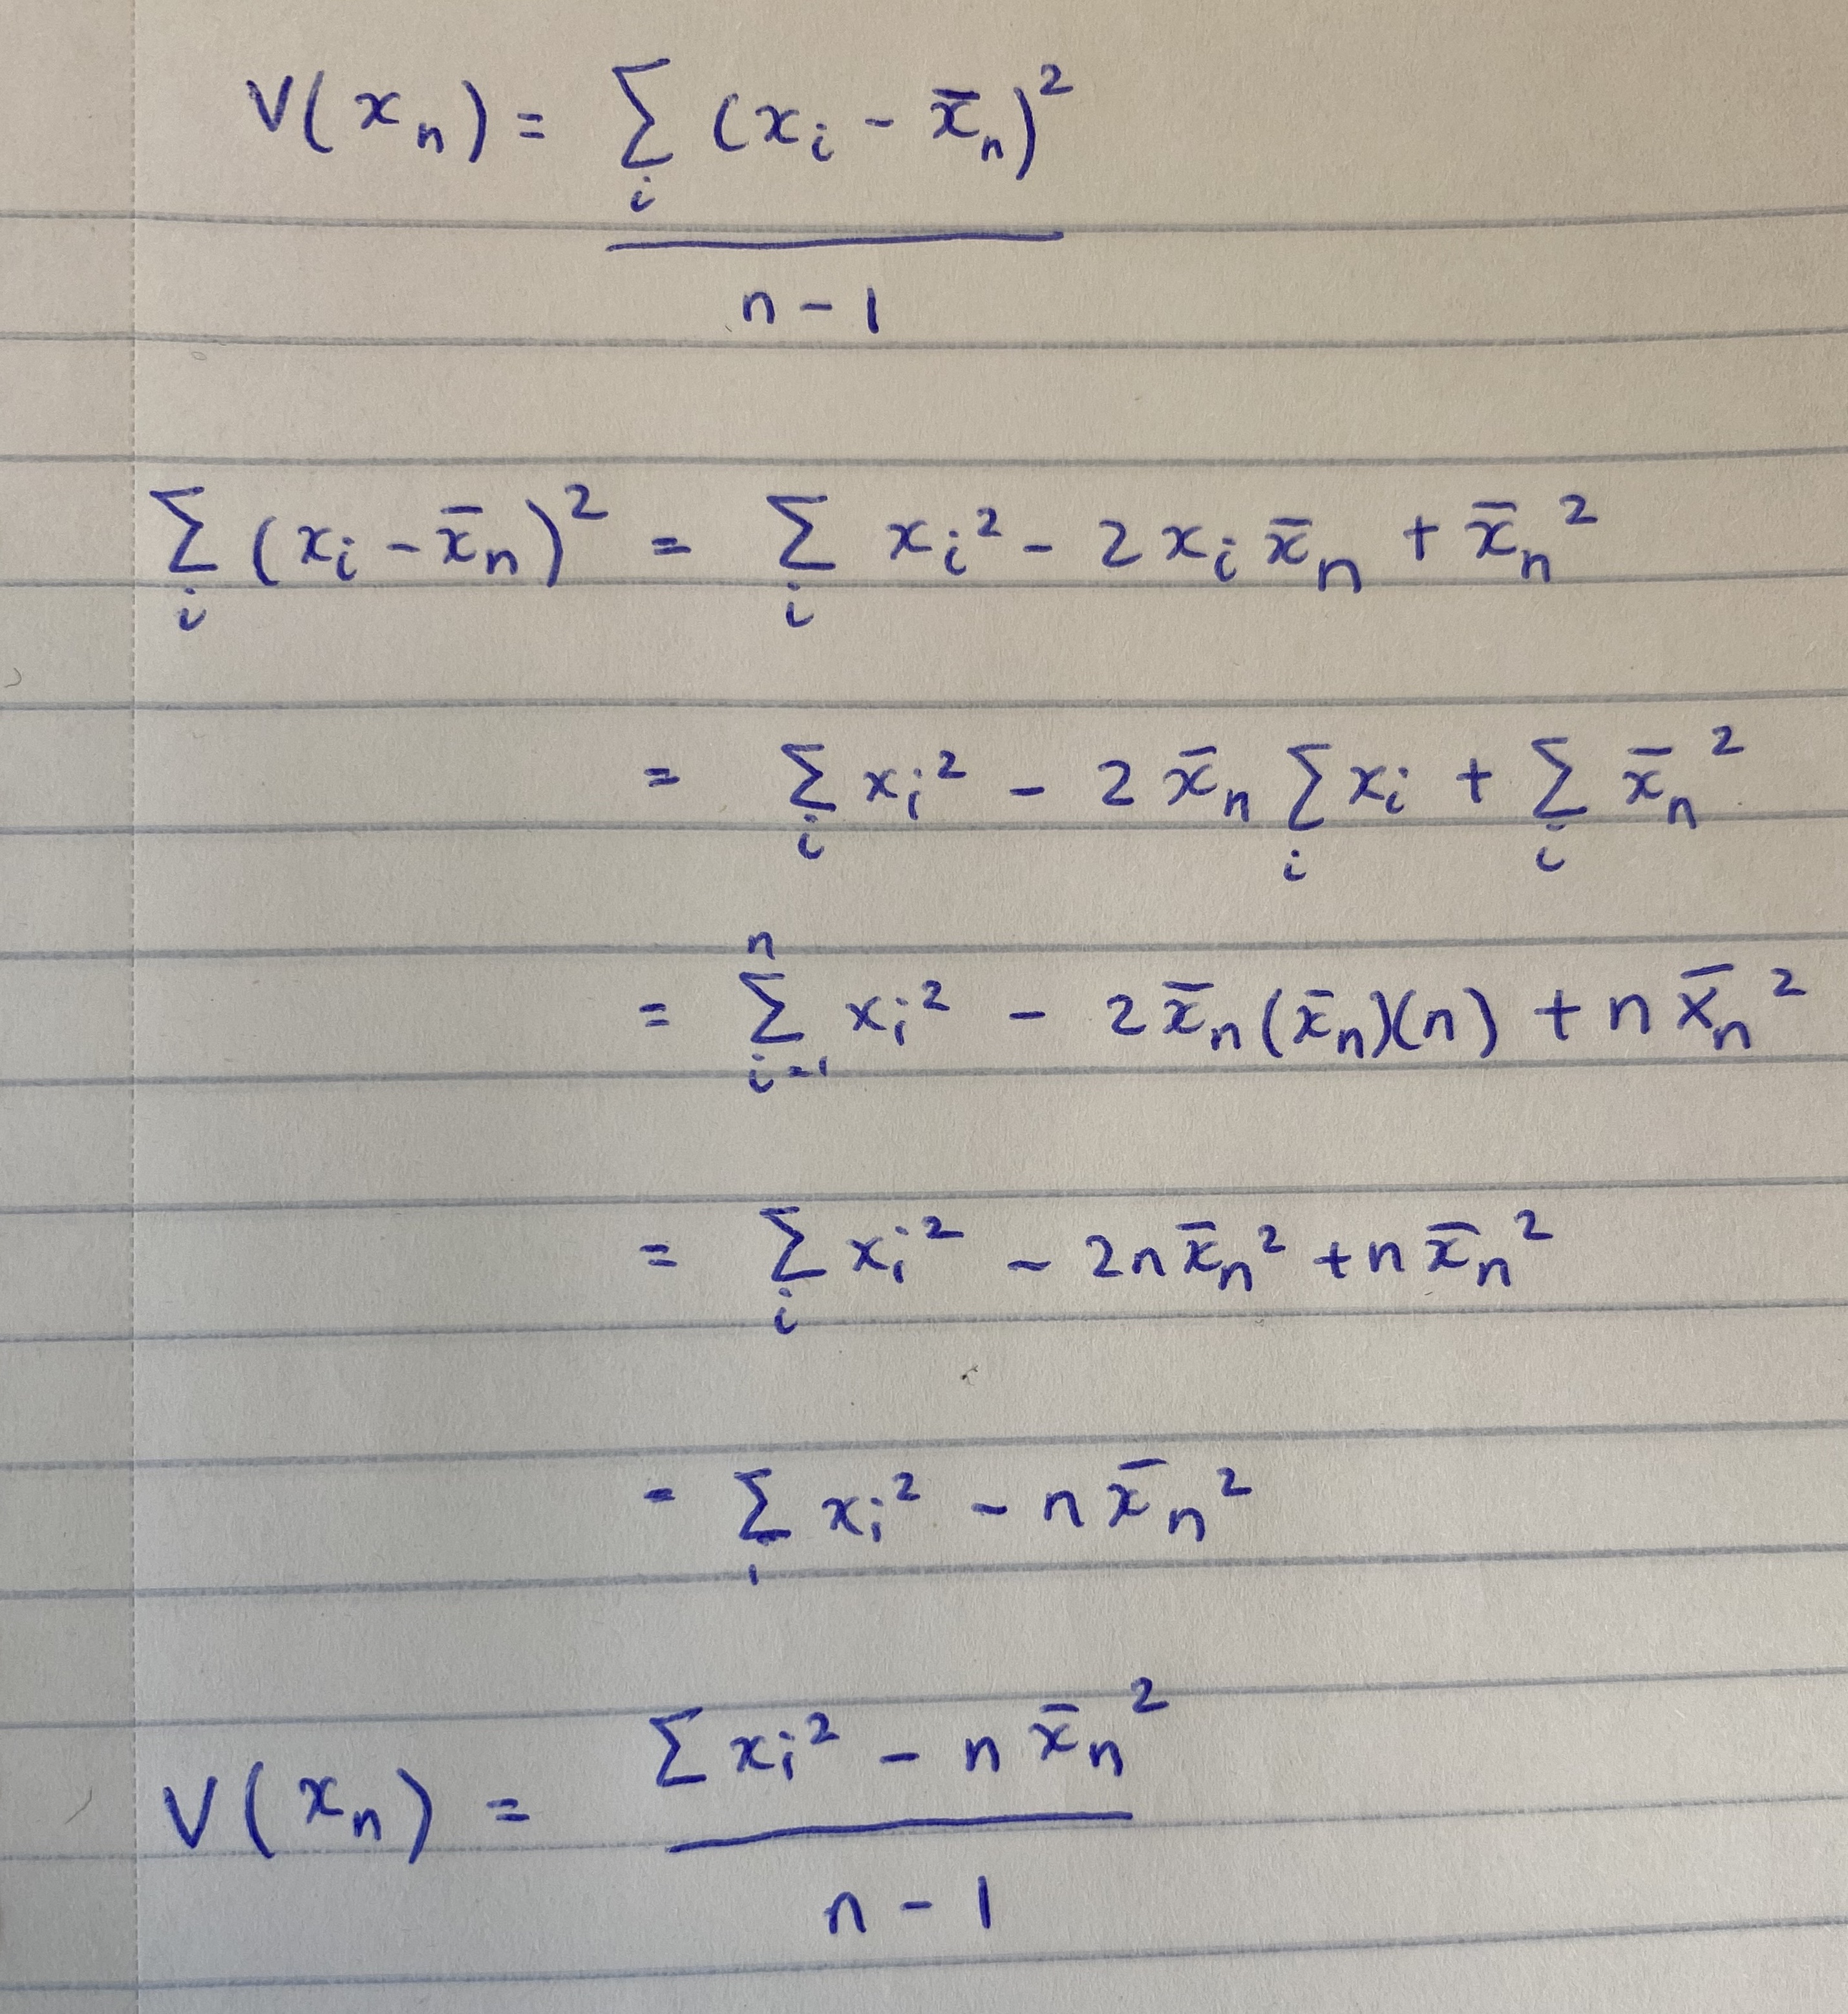 V(xₙ) = Σᵢ (xᵢ - x̄ₙ)²
n - 1
Σᵢ (xᵢ - x̄ₙ)² = Σᵢ xᵢ² - 2xᵢx̄ₙ + x̄ₙ²
= Σᵢ xᵢ² - 2x̄ₙ Σᵢ xᵢ + Σᵢ x̄ₙ²
= Σᵢ₌₁ⁿ xᵢ² - 2x̄ₙ(x̄ₙ)(n) + nx̄ₙ²
= Σᵢ xᵢ² - 2nx̄ₙ² + nx̄ₙ²
= Σᵢ xᵢ² - nx̄ₙ²
V(xₙ) = Σxᵢ² - nx̄ₙ²
n - 1